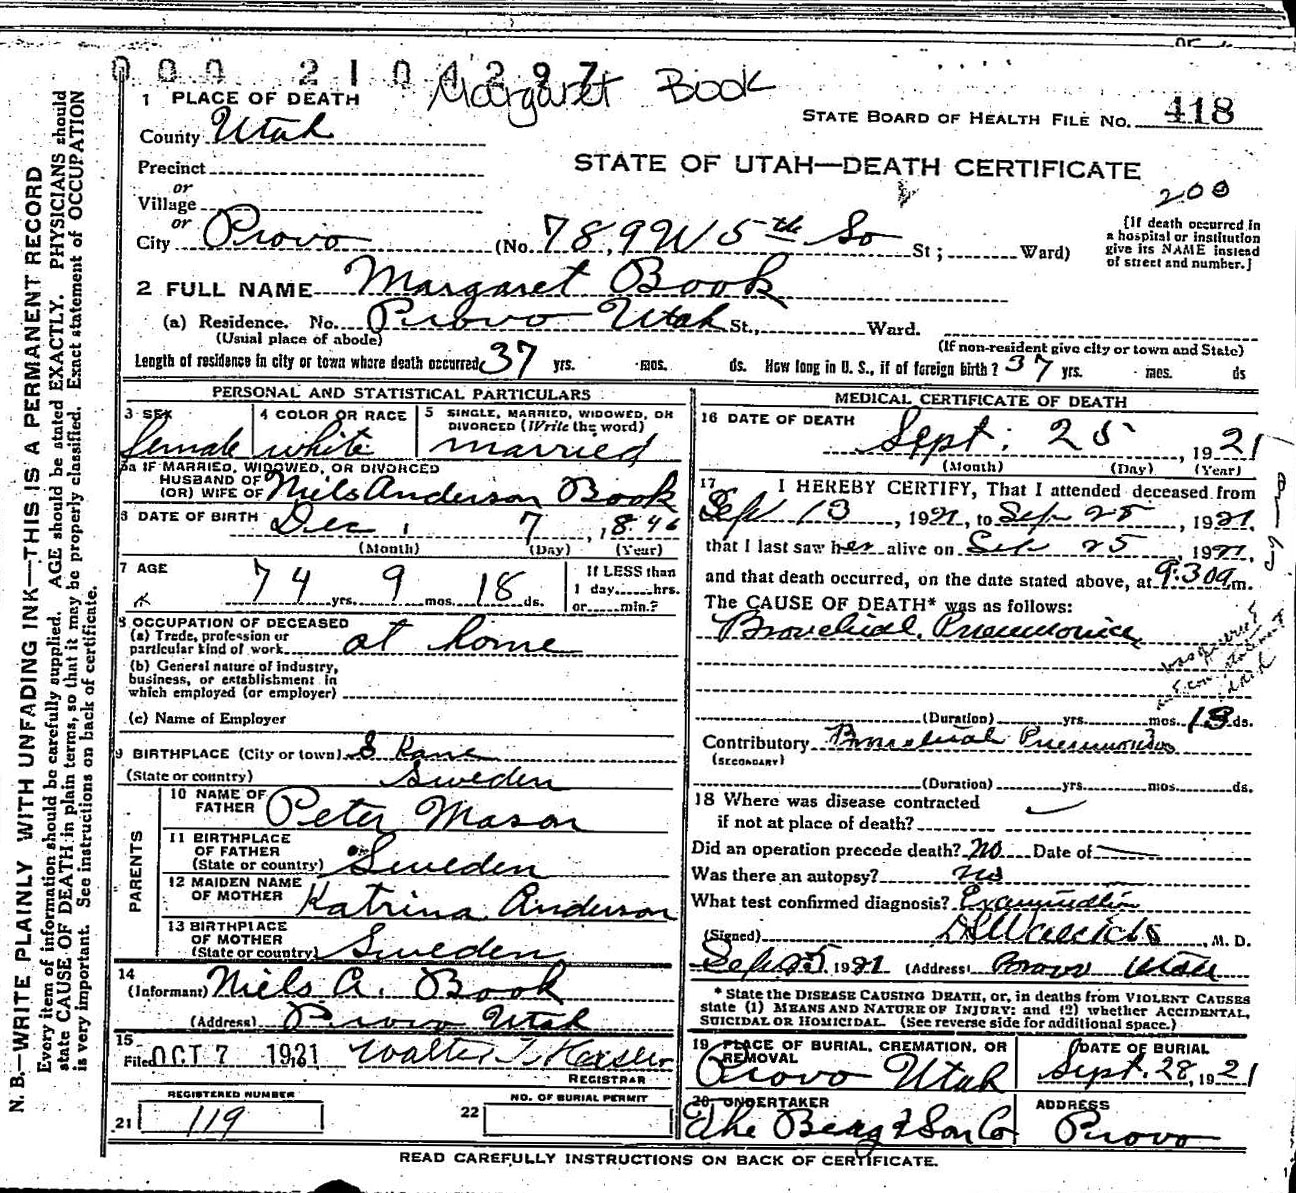 000 2104297
Margaret Book
1 PLACE OF DEATH
STATE BOARD OF HEALTH FILE No. 418
County Utah
STATE OF UTAH—DEATH CERTIFICATE
Precinct
or
200
Village
or
City Provo (No. 789 W 5th So St; Ward)
[If death occurred in a hospital or institution give its NAME instead of street and number.]
2 FULL NAME Margaret Book
(a) Residence. No. Provo Utah St., Ward.
(Usual place of abode) (If non-resident give city or town and State)
Length of residence in city or town where death occurred 37 yrs. mos. ds. How long in U. S., if of foreign birth? 37 yrs. mos. ds
PERSONAL AND STATISTICAL PARTICULARS
3 SEX
female
4 COLOR OR RACE
white
5 SINGLE, MARRIED, WIDOWED, OR DIVORCED (Write the word)
married
5a IF MARRIED, WIDOWED, OR DIVORCED
HUSBAND OF
(OR) WIFE OF Niels Anderson Book
6 DATE OF BIRTH Dec. 7, 1846
(Month) (Day) (Year)
7 AGE
74 yrs. 9 mos. 18 ds.
If LESS than
1 day......hrs.
or......min.?
8 OCCUPATION OF DECEASED
(a) Trade, profession or
particular kind of work at home
(b) General nature of industry,
business, or establishment in
which employed (or employer)
(c) Name of Employer
9 BIRTHPLACE (City or town) S Kane
(State or country) Sweden
PARENTS
10 NAME OF
FATHER Peter Mason
11 BIRTHPLACE
OF FATHER
(State or country) Sweden
12 MAIDEN NAME
OF MOTHER Katrina Anderson
13 BIRTHPLACE
OF MOTHER
(State or country) Sweden
14
(Informant) Niels A. Book
(Address) Provo Utah
15
Filed OCT 7 1921 Walter T. Hasler
REGISTRAR
REGISTERED NUMBER
21 119
NO. OF BURIAL PERMIT
22
MEDICAL CERTIFICATE OF DEATH
16 DATE OF DEATH
Sept. 25, 1921
(Month) (Day) (Year)
17 I HEREBY CERTIFY, That I attended deceased from
Sept 13, 1921, to Sep 25, 1921,
that I last saw her alive on Sep 25, 1921,
and that death occurred, on the date stated above, at 9:30 a m.
The CAUSE OF DEATH* was as follows:
Bronchial Pneumonia
(Duration) yrs. mos. 13 ds.
Contributory Bronchial Pneumonia
(SECONDARY)
(Duration) yrs. mos. ds.
18 Where was disease contracted
if not at place of death?
Did an operation precede death? no Date of
Was there an autopsy? no
What test confirmed diagnosis? Examination
(Signed) M. D.
Sep 25, 1921 (Address) Provo Utah
* State the DISEASE CAUSING DEATH, or, in deaths from VIOLENT CAUSES
state (1) MEANS AND NATURE OF INJURY; and (2) whether ACCIDENTAL,
SUICIDAL OR HOMICIDAL. (See reverse side for additional space.)
19 PLACE OF BURIAL, CREMATION, OR
REMOVAL
Provo Utah
DATE OF BURIAL
Sept. 28, 1921
20 UNDERTAKER
The Berg & Son Co
ADDRESS
Provo
READ CAREFULLY INSTRUCTIONS ON BACK OF CERTIFICATE.
N. B.—WRITE PLAINLY WITH UNFADING INK—THIS IS A PERMANENT RECORD
Every item of information should be carefully supplied. AGE should be stated EXACTLY. PHYSICIANS should
state CAUSE OF DEATH in plain terms, so that it may be properly classified. Exact statement of OCCUPATION
is very important. See instructions on back of certificate.